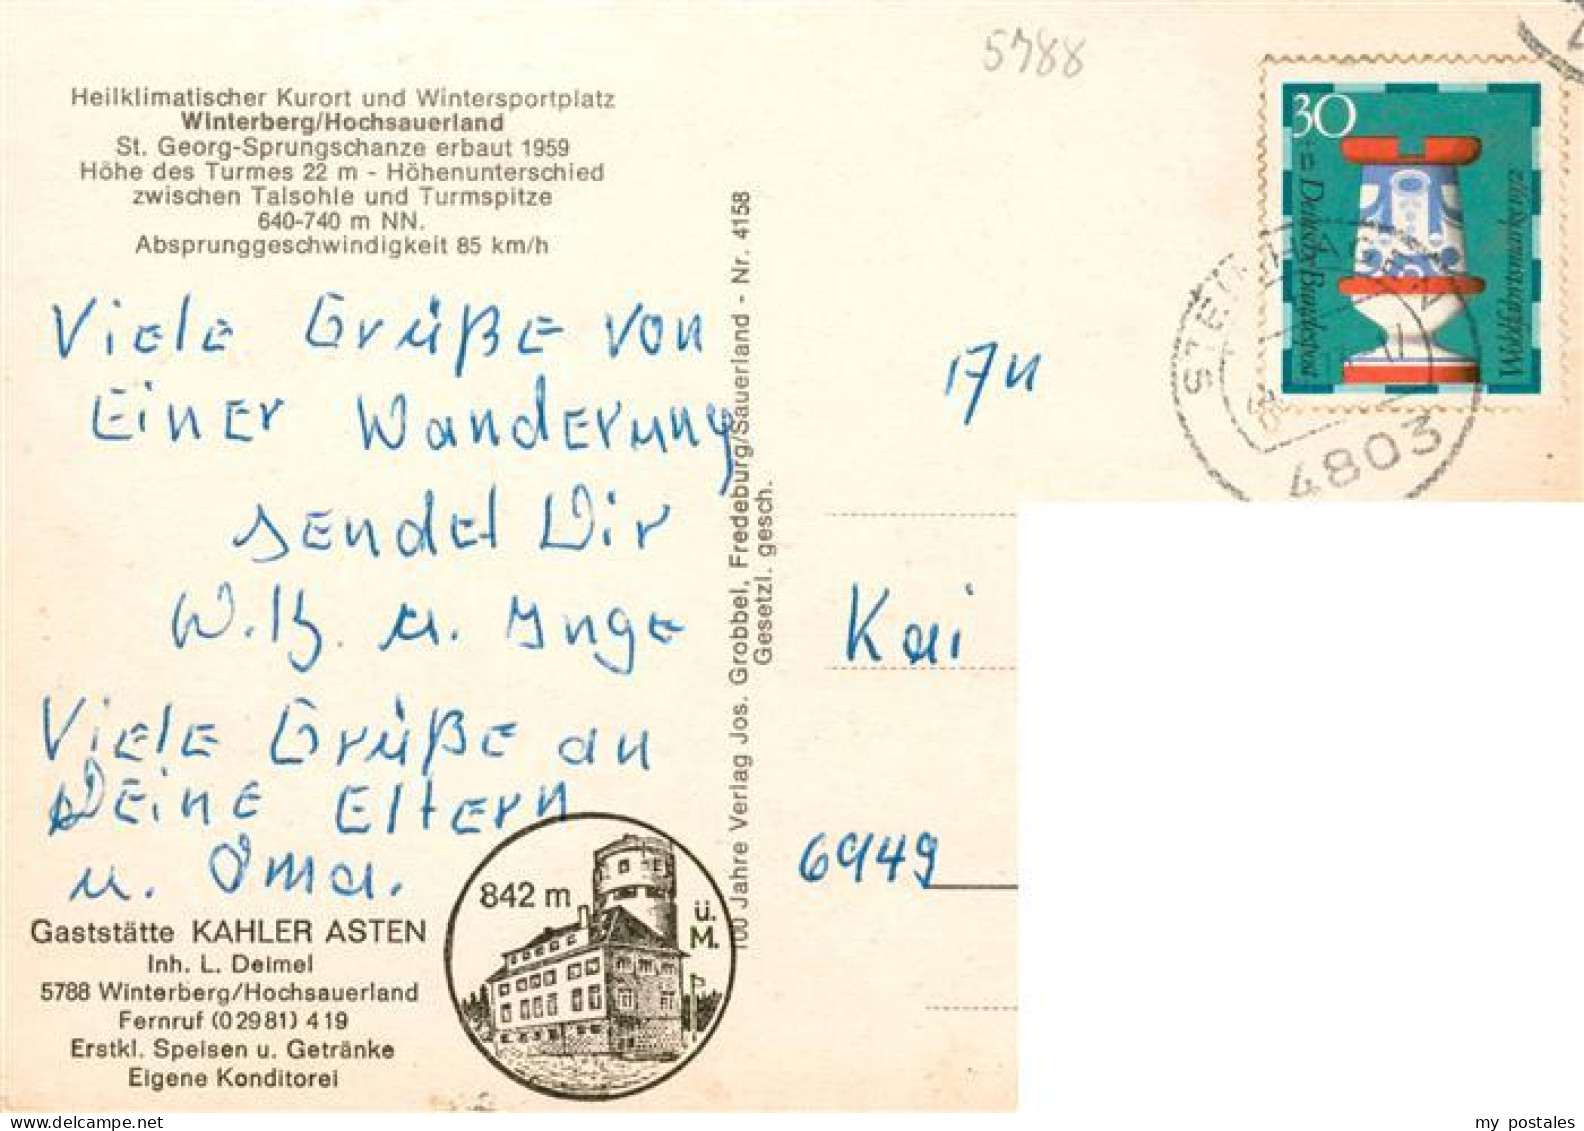 5788
Heilklimatischer Kurort und Wintersportplatz
Winterberg/Hochsauerland
St. Georg-Sprungschanze erbaut 1959
Höhe des Turmes 22 m - Höhenunterschied
zwischen Talsohle und Turmspitze
640-740 m NN.
Absprunggeschwindigkeit 85 km/h
Viele Grüße von
Einer Wanderung
sendet Dir
W.B. u. Inge
Viele Grüße an
Deine Eltern
u. Oma.
Gaststätte KAHLER ASTEN
Inh. L. Deimel
5788 Winterberg/Hochsauerland
Fernruf (02981) 419
Erstkl. Speisen u. Getränke
Eigene Konditorei
842 m
ü.
M.
100 Jahre Verlag Jos. Grobbel, Fredeburg/Sauerland - Nr. 4158
Gesetzl. gesch.
30
Deutsche Bundespost
Wohlfahrtsmarke
STEINHAGEN
4803
17u
Kai
6949
my postales